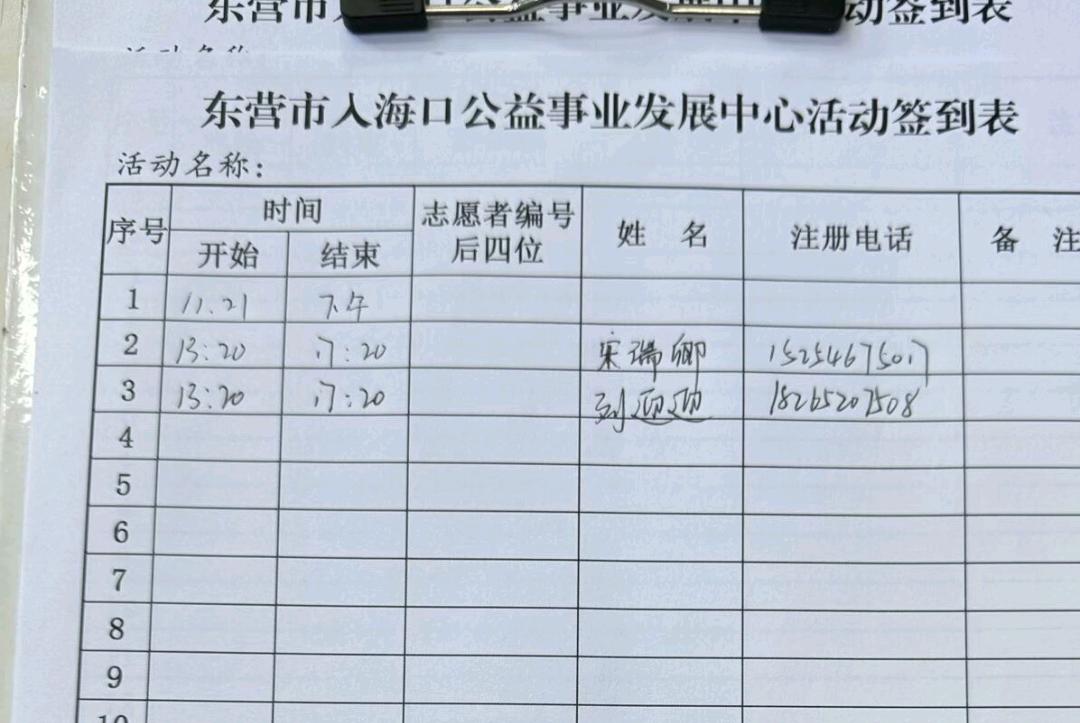 东营市入海口公益事业发展中心活动签到表
活动名称：
序号 时间 志愿者编号后四位 姓 名 注册电话 备 注
开始 结束
1 11.21 下午
2 13:20 17:20 宋瑞卿 15254675017
3 13:20 17:20 刘迎迎 18265207508
4
5
6
7
8
9
10